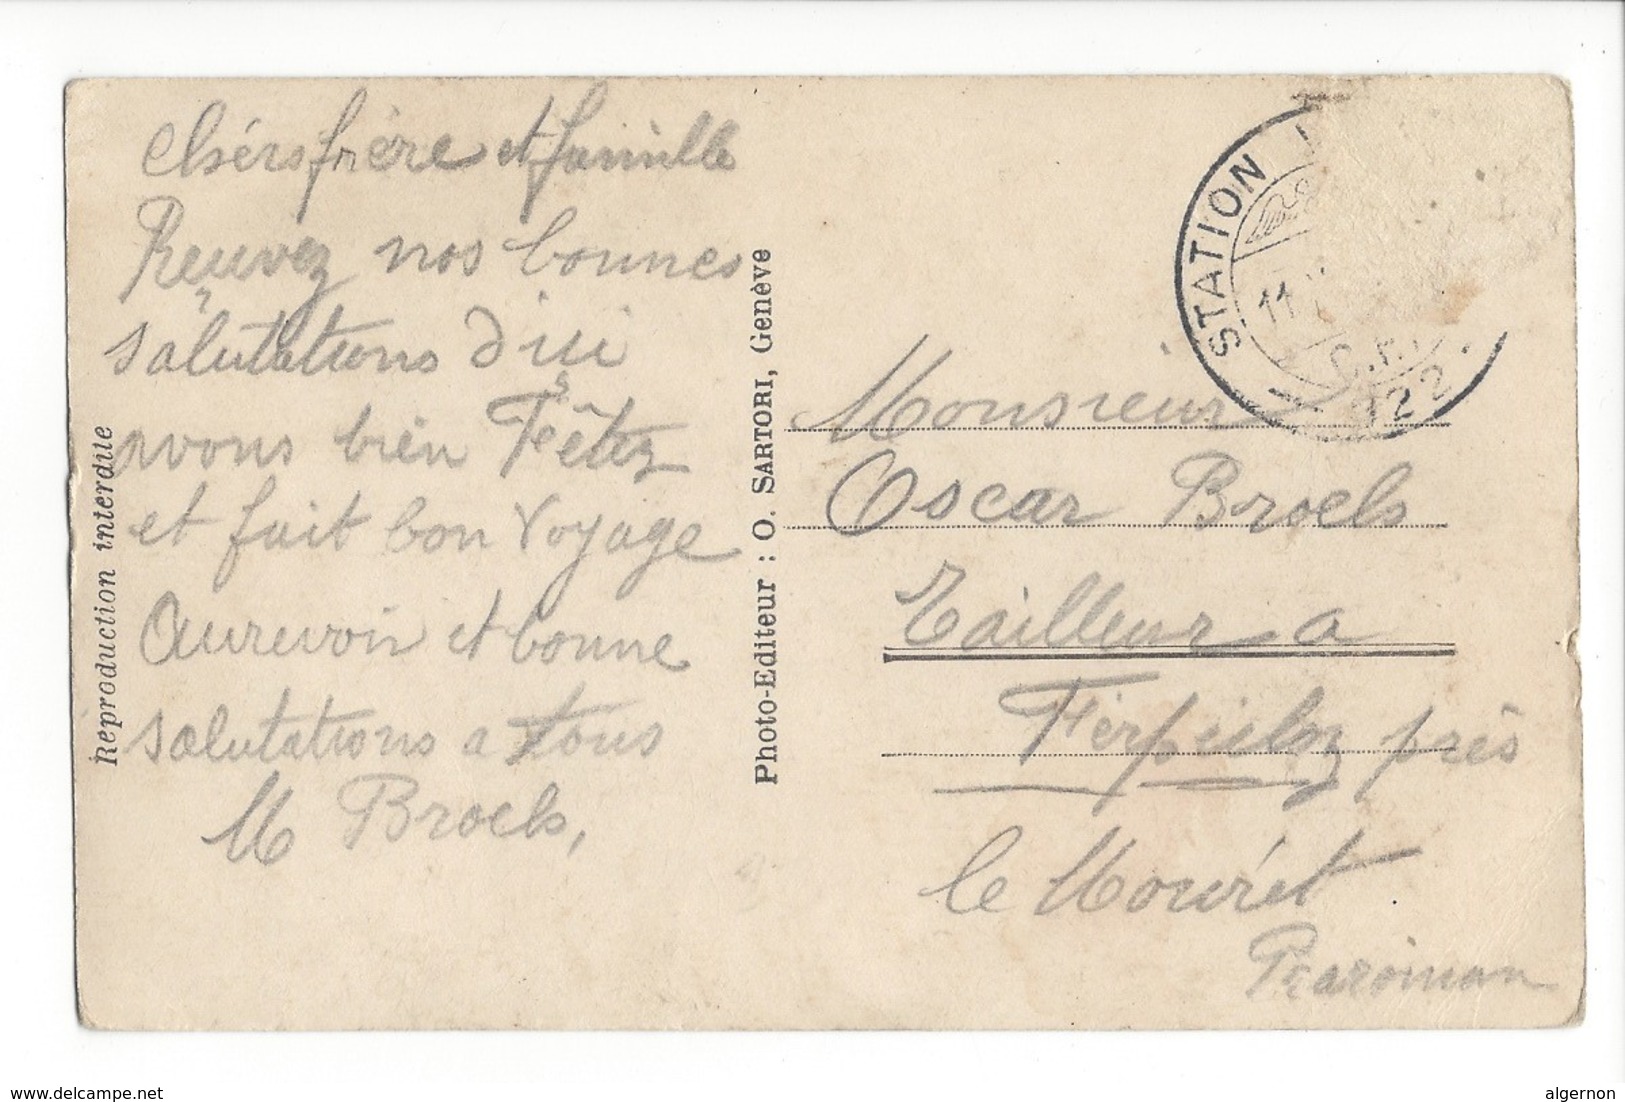 Chers frère et famille
Reçuvez nos bonnes
salutations d'ici
avons bien Fêtez
et fait bon voyage
Aurevoir et bonne
salutations a tous
M Broels,
Reproduction interdite
Photo-Editeur : O. SARTORI, Genève
STATION
11
C.F.
22
Monsieur
Oscar Broels
Tailleur a
Ferpicloz près
le Mouret
Praroman
www.delcampe.net
algernon